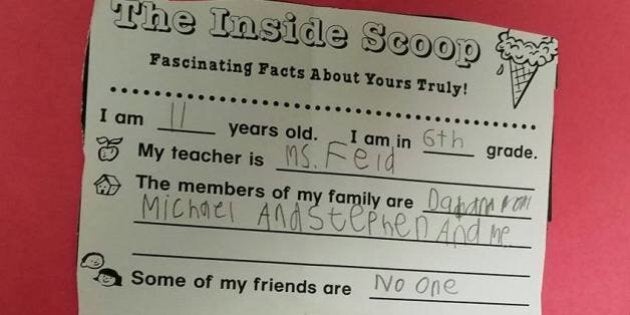 The Inside Scoop
Fascinating Facts About Yours Truly!
I am 11 years old. I am in 6th grade.
My teacher is Ms. Feid
The members of my family are
Michael And Stephen And me
Some of my friends are No One